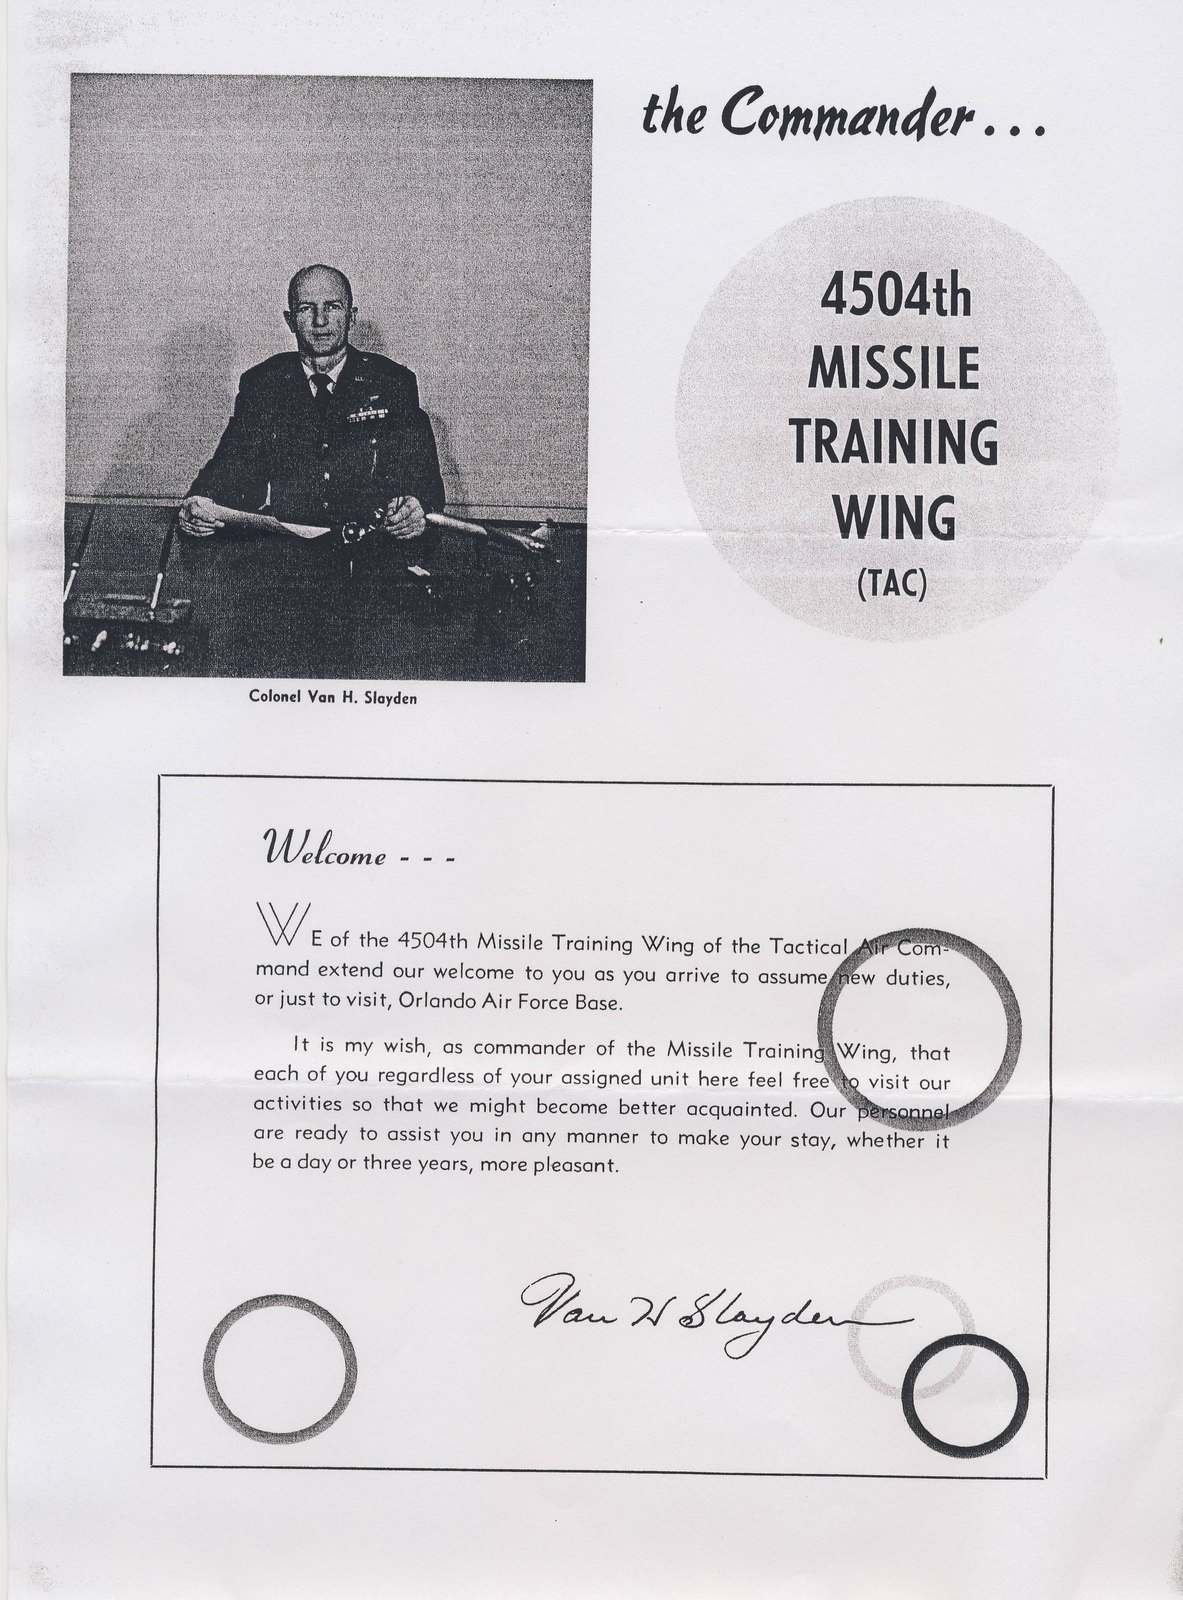 the Commander...
4504th
MISSILE
TRAINING
WING
(TAC)
Colonel Van H. Slayden
Welcome - - -
WE of the 4504th Missile Training Wing of the Tactical Air Com-
mand extend our welcome to you as you arrive to assume new duties,
or just to visit, Orlando Air Force Base.
It is my wish, as commander of the Missile Training Wing, that
each of you regardless of your assigned unit here feel free to visit our
activities so that we might become better acquainted. Our personnel
are ready to assist you in any manner to make your stay, whether it
be a day or three years, more pleasant.
Van H Slayden